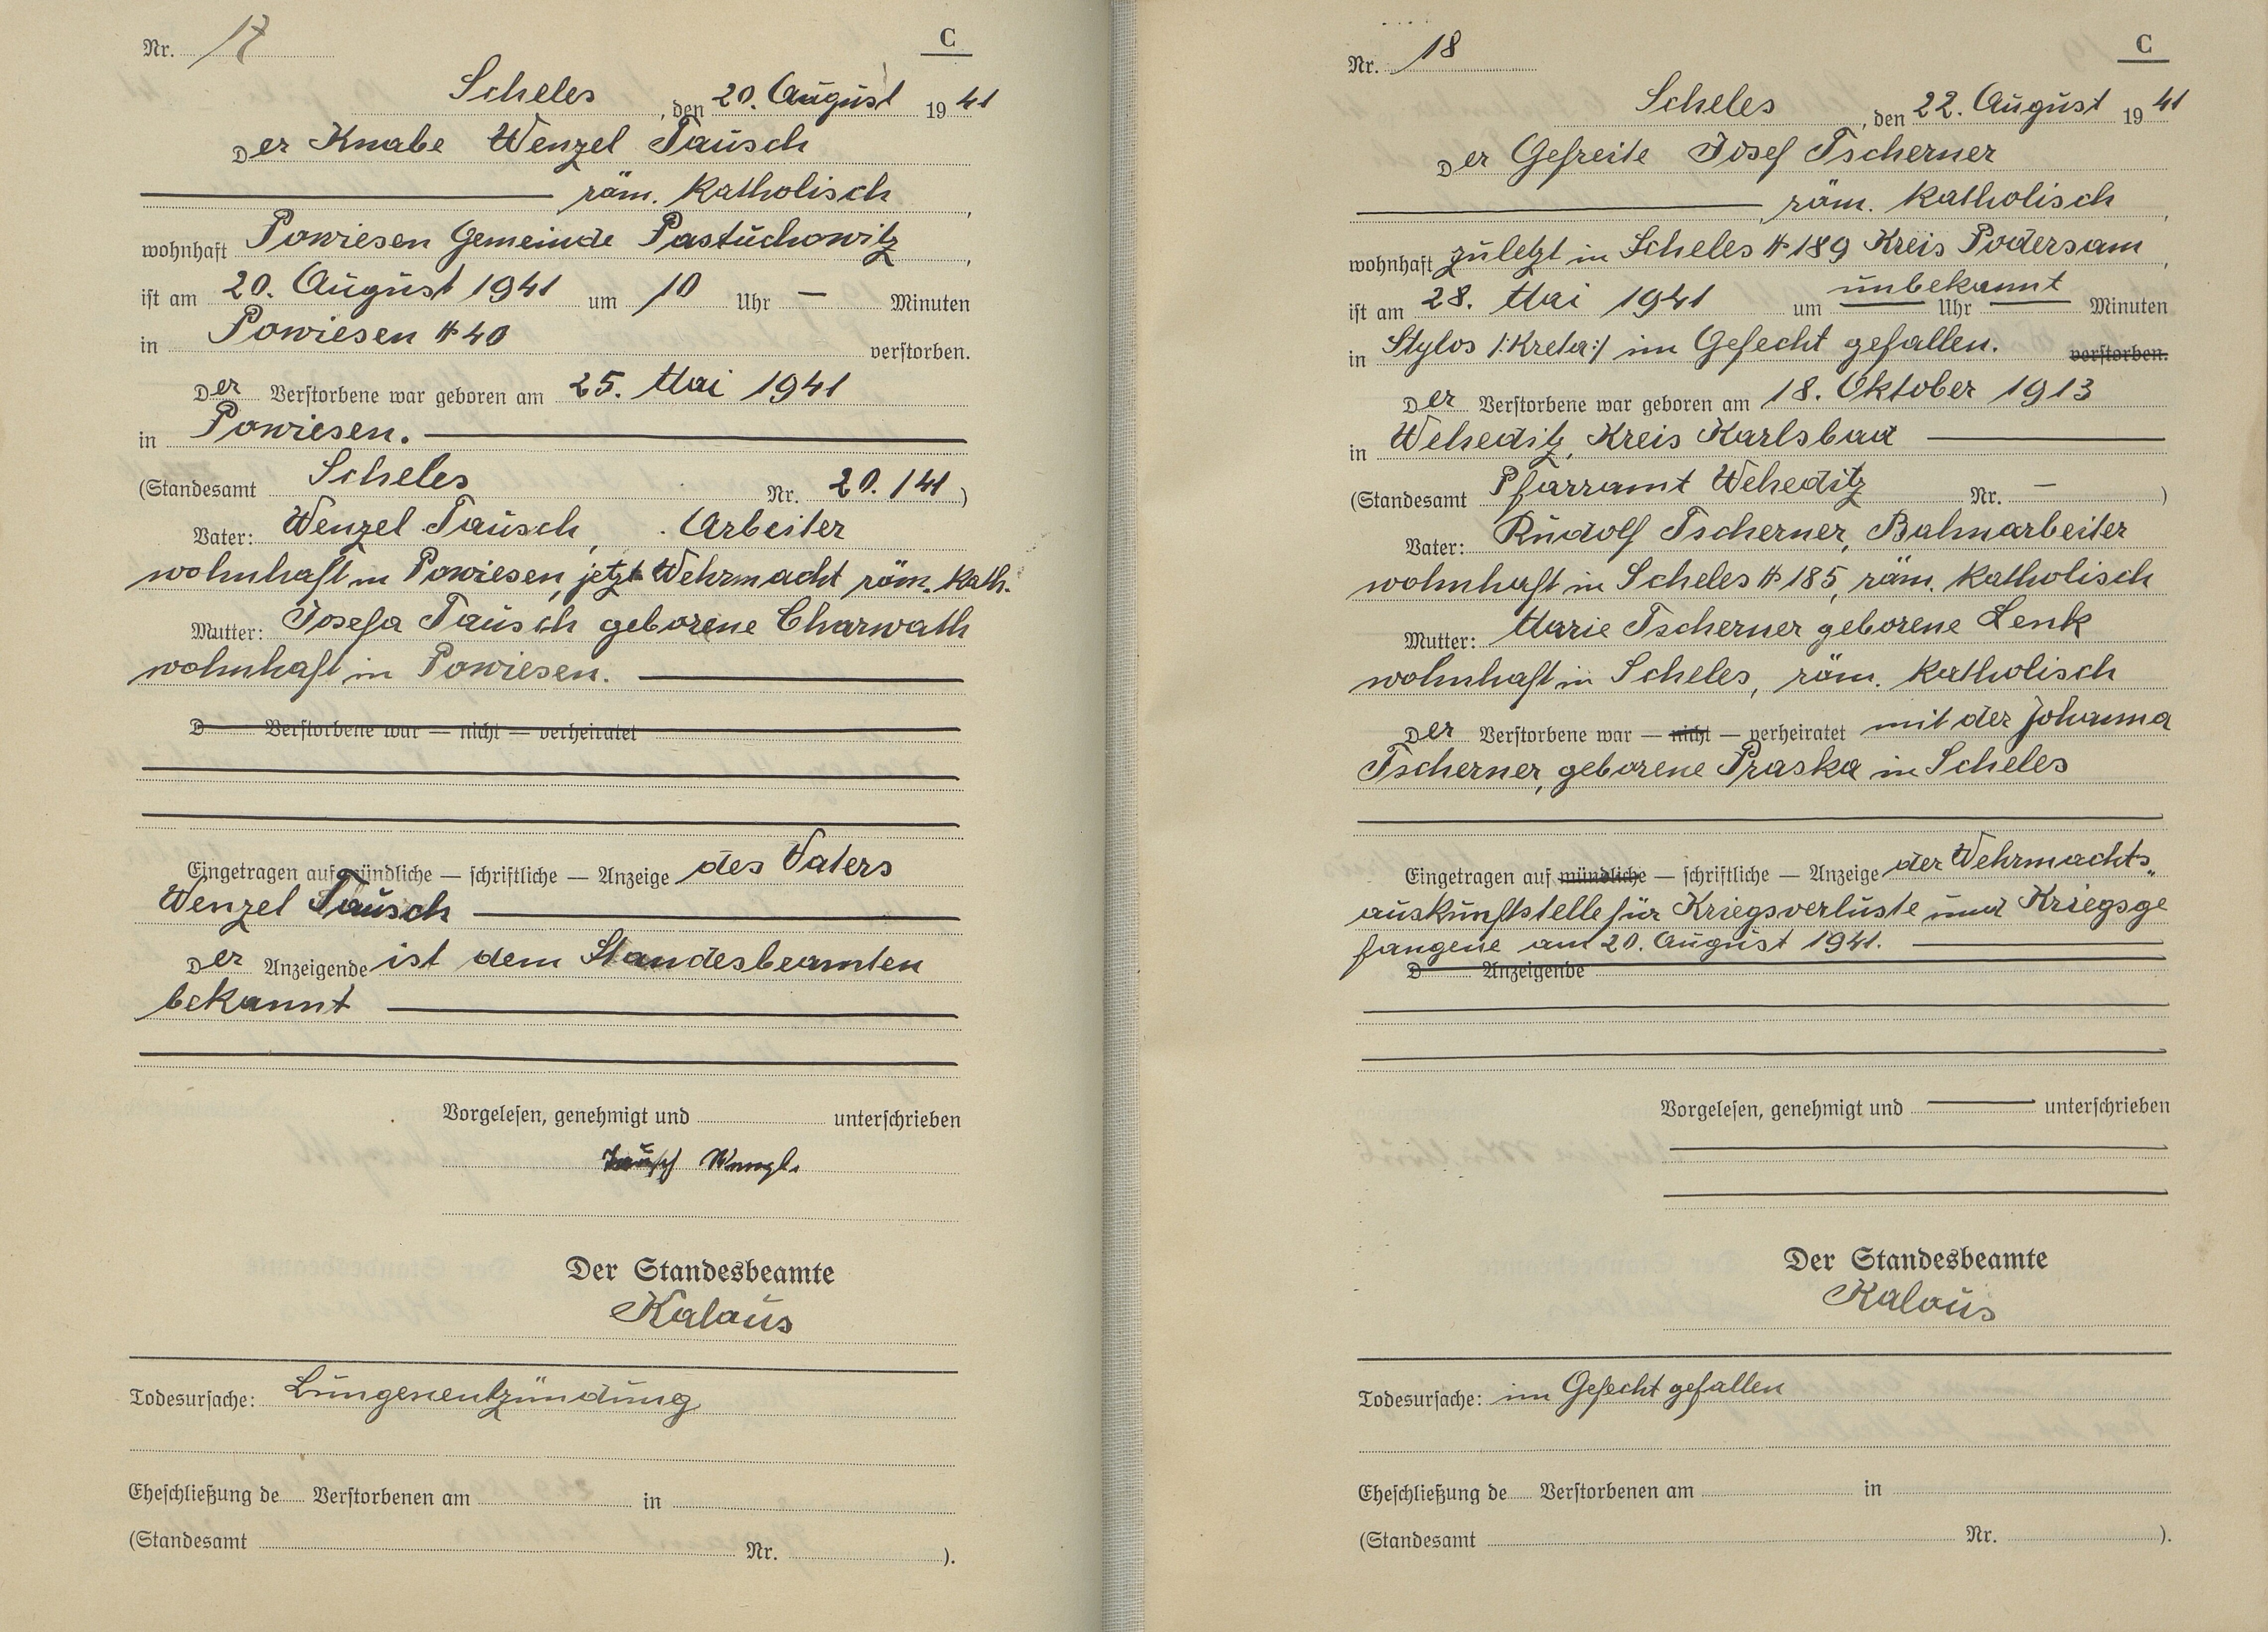 Nr. 17 C
Scheles, den 20. August 1941
Der Knabe Wenzel Tausch
röm. katholisch,
wohnhaft Powiesen Gemeinde Pastuchowitz,
ist am 20. August 1941 um 10 Uhr — Minuten
in Powiesen # 40 verstorben.
Der Verstorbene war geboren am 25. Mai 1941
in Powiesen.
(Standesamt Scheles Nr. 20./41)
Vater: Wenzel Tausch, Arbeiter
wohnhaft in Powiesen, jetzt Wehrmacht röm. kath.
Mutter: Josefa Tausch geborene Charwath
wohnhaft in Powiesen.
D Verstorbene war — nicht — verheiratet
Eingetragen auf mündliche — schriftliche — Anzeige des Vaters
Wenzel Tausch
Der Anzeigende ist dem Standesbeamten
bekannt
Vorgelesen, genehmigt und unterschrieben
Tausch Wenzl.
Der Standesbeamte
Kalaus
Todesursache: Lungenentzündung
Eheschließung de Verstorbenen am in
(Standesamt Nr. ).
Nr. 18 C
Scheles, den 22. August 1941
Der Gefreite Josef Tscherner
, röm. katholisch,
wohnhaft zuletzt in Scheles # 189 Kreis Podersam,
ist am 28. Mai 1941 um unbekannt Uhr Minuten
in Stylos /:Kreta:/ im Gefecht gefallen. verstorben.
Der Verstorbene war geboren am 18. Oktober 1913
in Weheditz, Kreis Karlsbad
(Standesamt Pfarramt Weheditz Nr. — )
Vater: Rudolf Tscherner, Bahnarbeiter
wohnhaft in Scheles # 185, röm. katholisch
Mutter: Marie Tscherner geborene Lenk
wohnhaft in Scheles, röm. katholisch
Der Verstorbene war — nicht — verheiratet mit der Johanna
Tscherner, geborene Praska in Scheles
Eingetragen auf mündliche — schriftliche — Anzeige der Wehrmachts„
auskunftstelle für Kriegsverluste und Kriegsge
fangene am 20. August 1941.
D Anzeigende
Vorgelesen, genehmigt und unterschrieben
Der Standesbeamte
Kalaus
Todesursache: im Gefecht gefallen
Eheschließung de Verstorbenen am in
(Standesamt Nr. ).